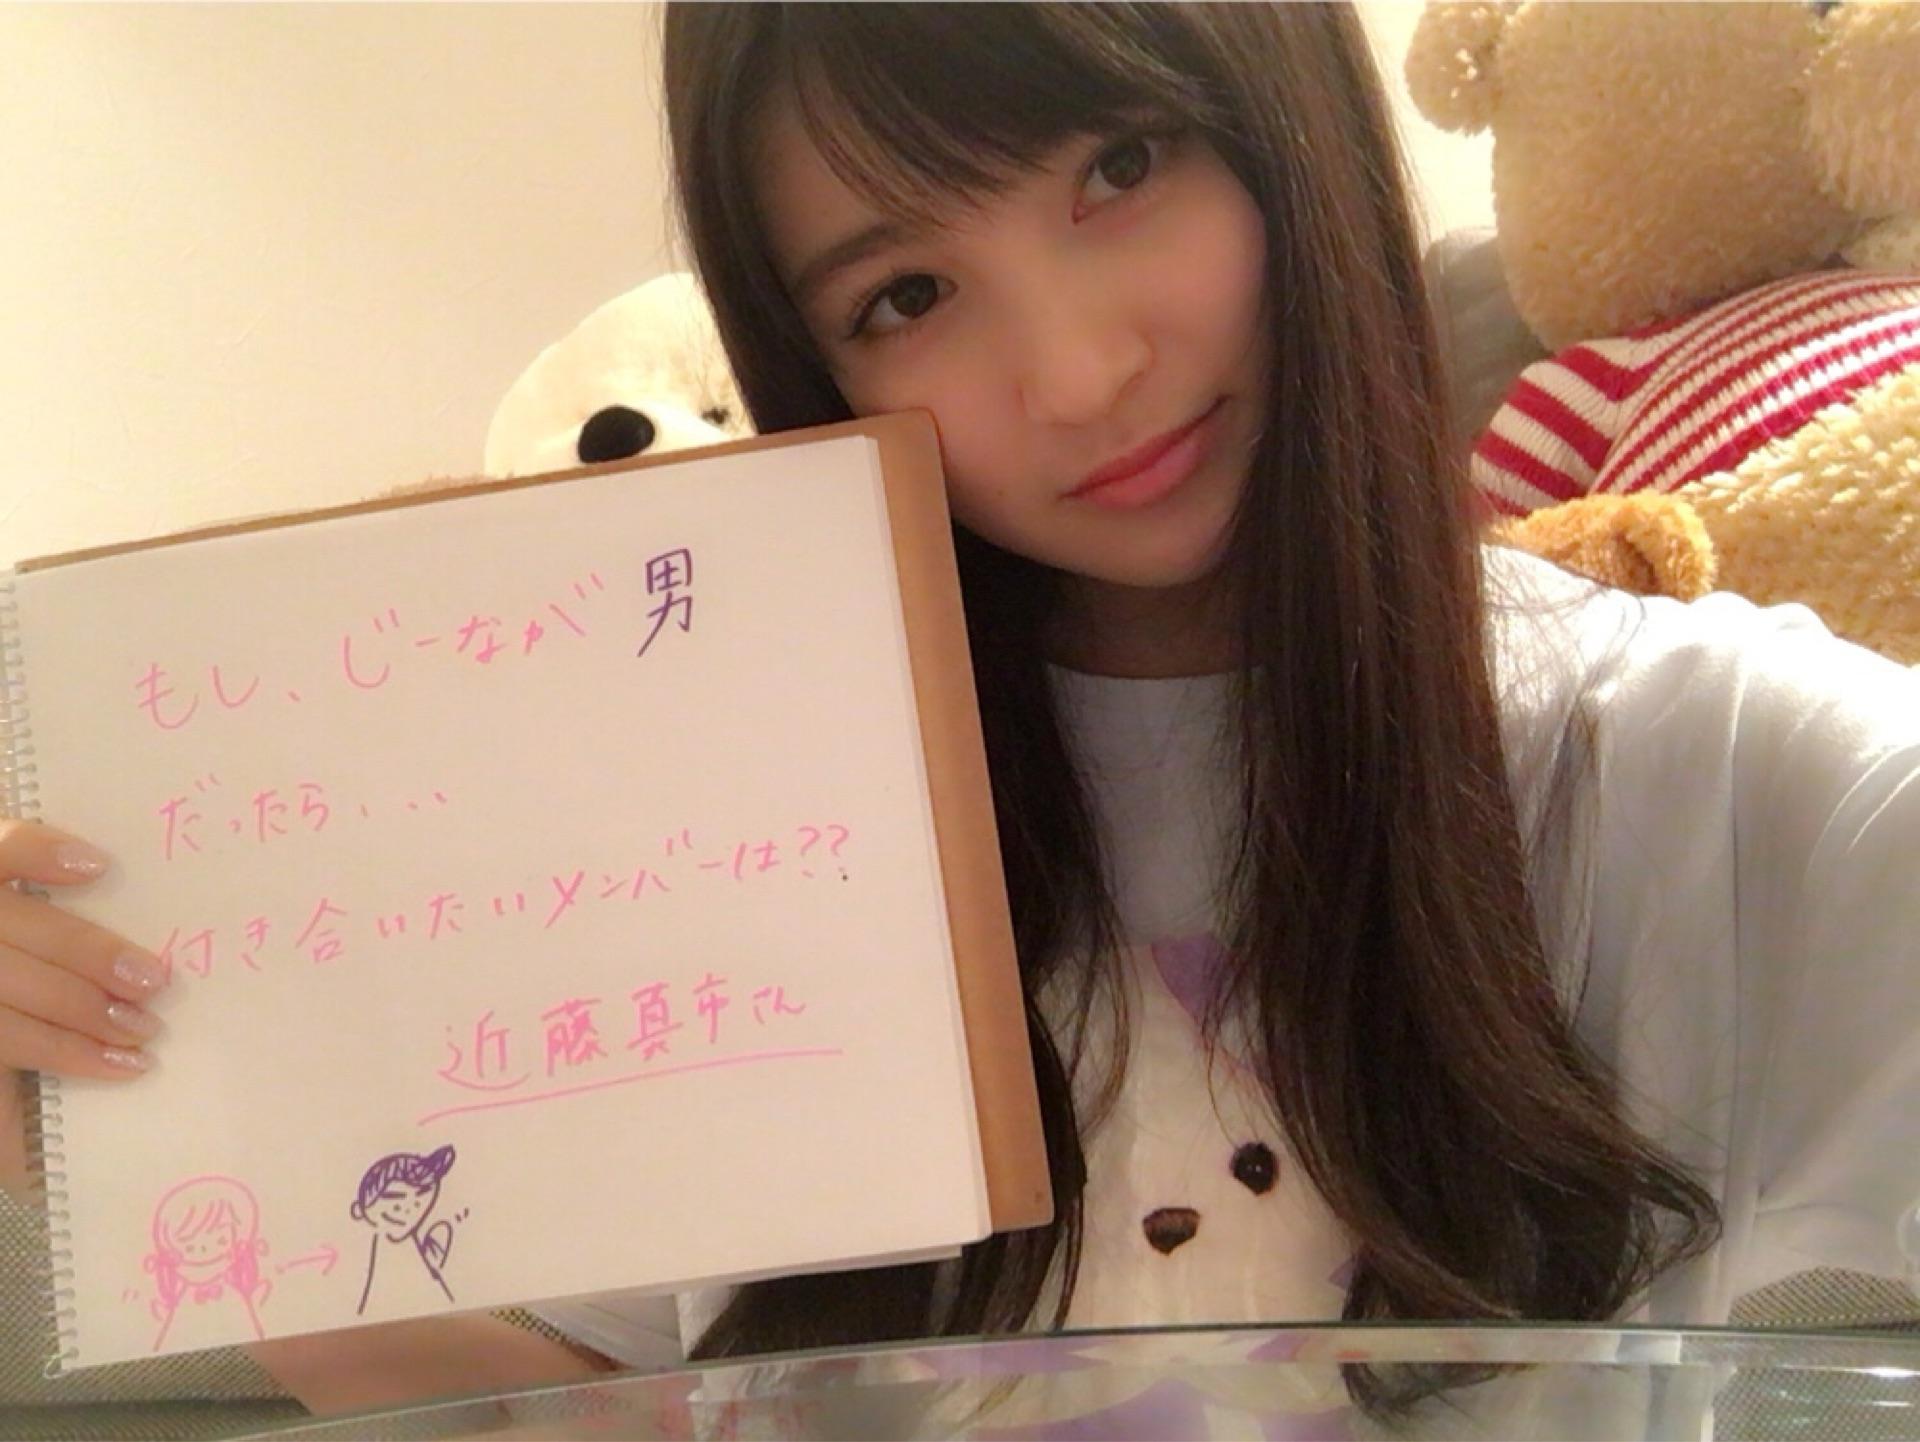 もし、じーなが男
だったら...
付き合いたいメンバーは??
近藤真市さん